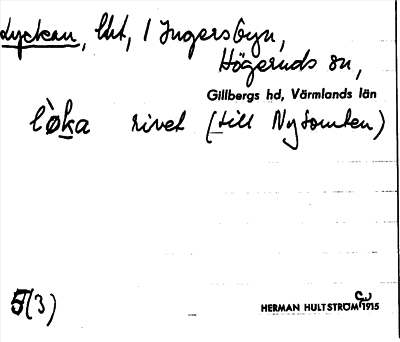 Lyckan, lht, 1 Ingersbyn,
Högeruds sn,
Gillbergs hd, Värmlands län
lò̀ka rivet (till Nytomten)
5(3)
HERMAN HULTSTRÖM 1915